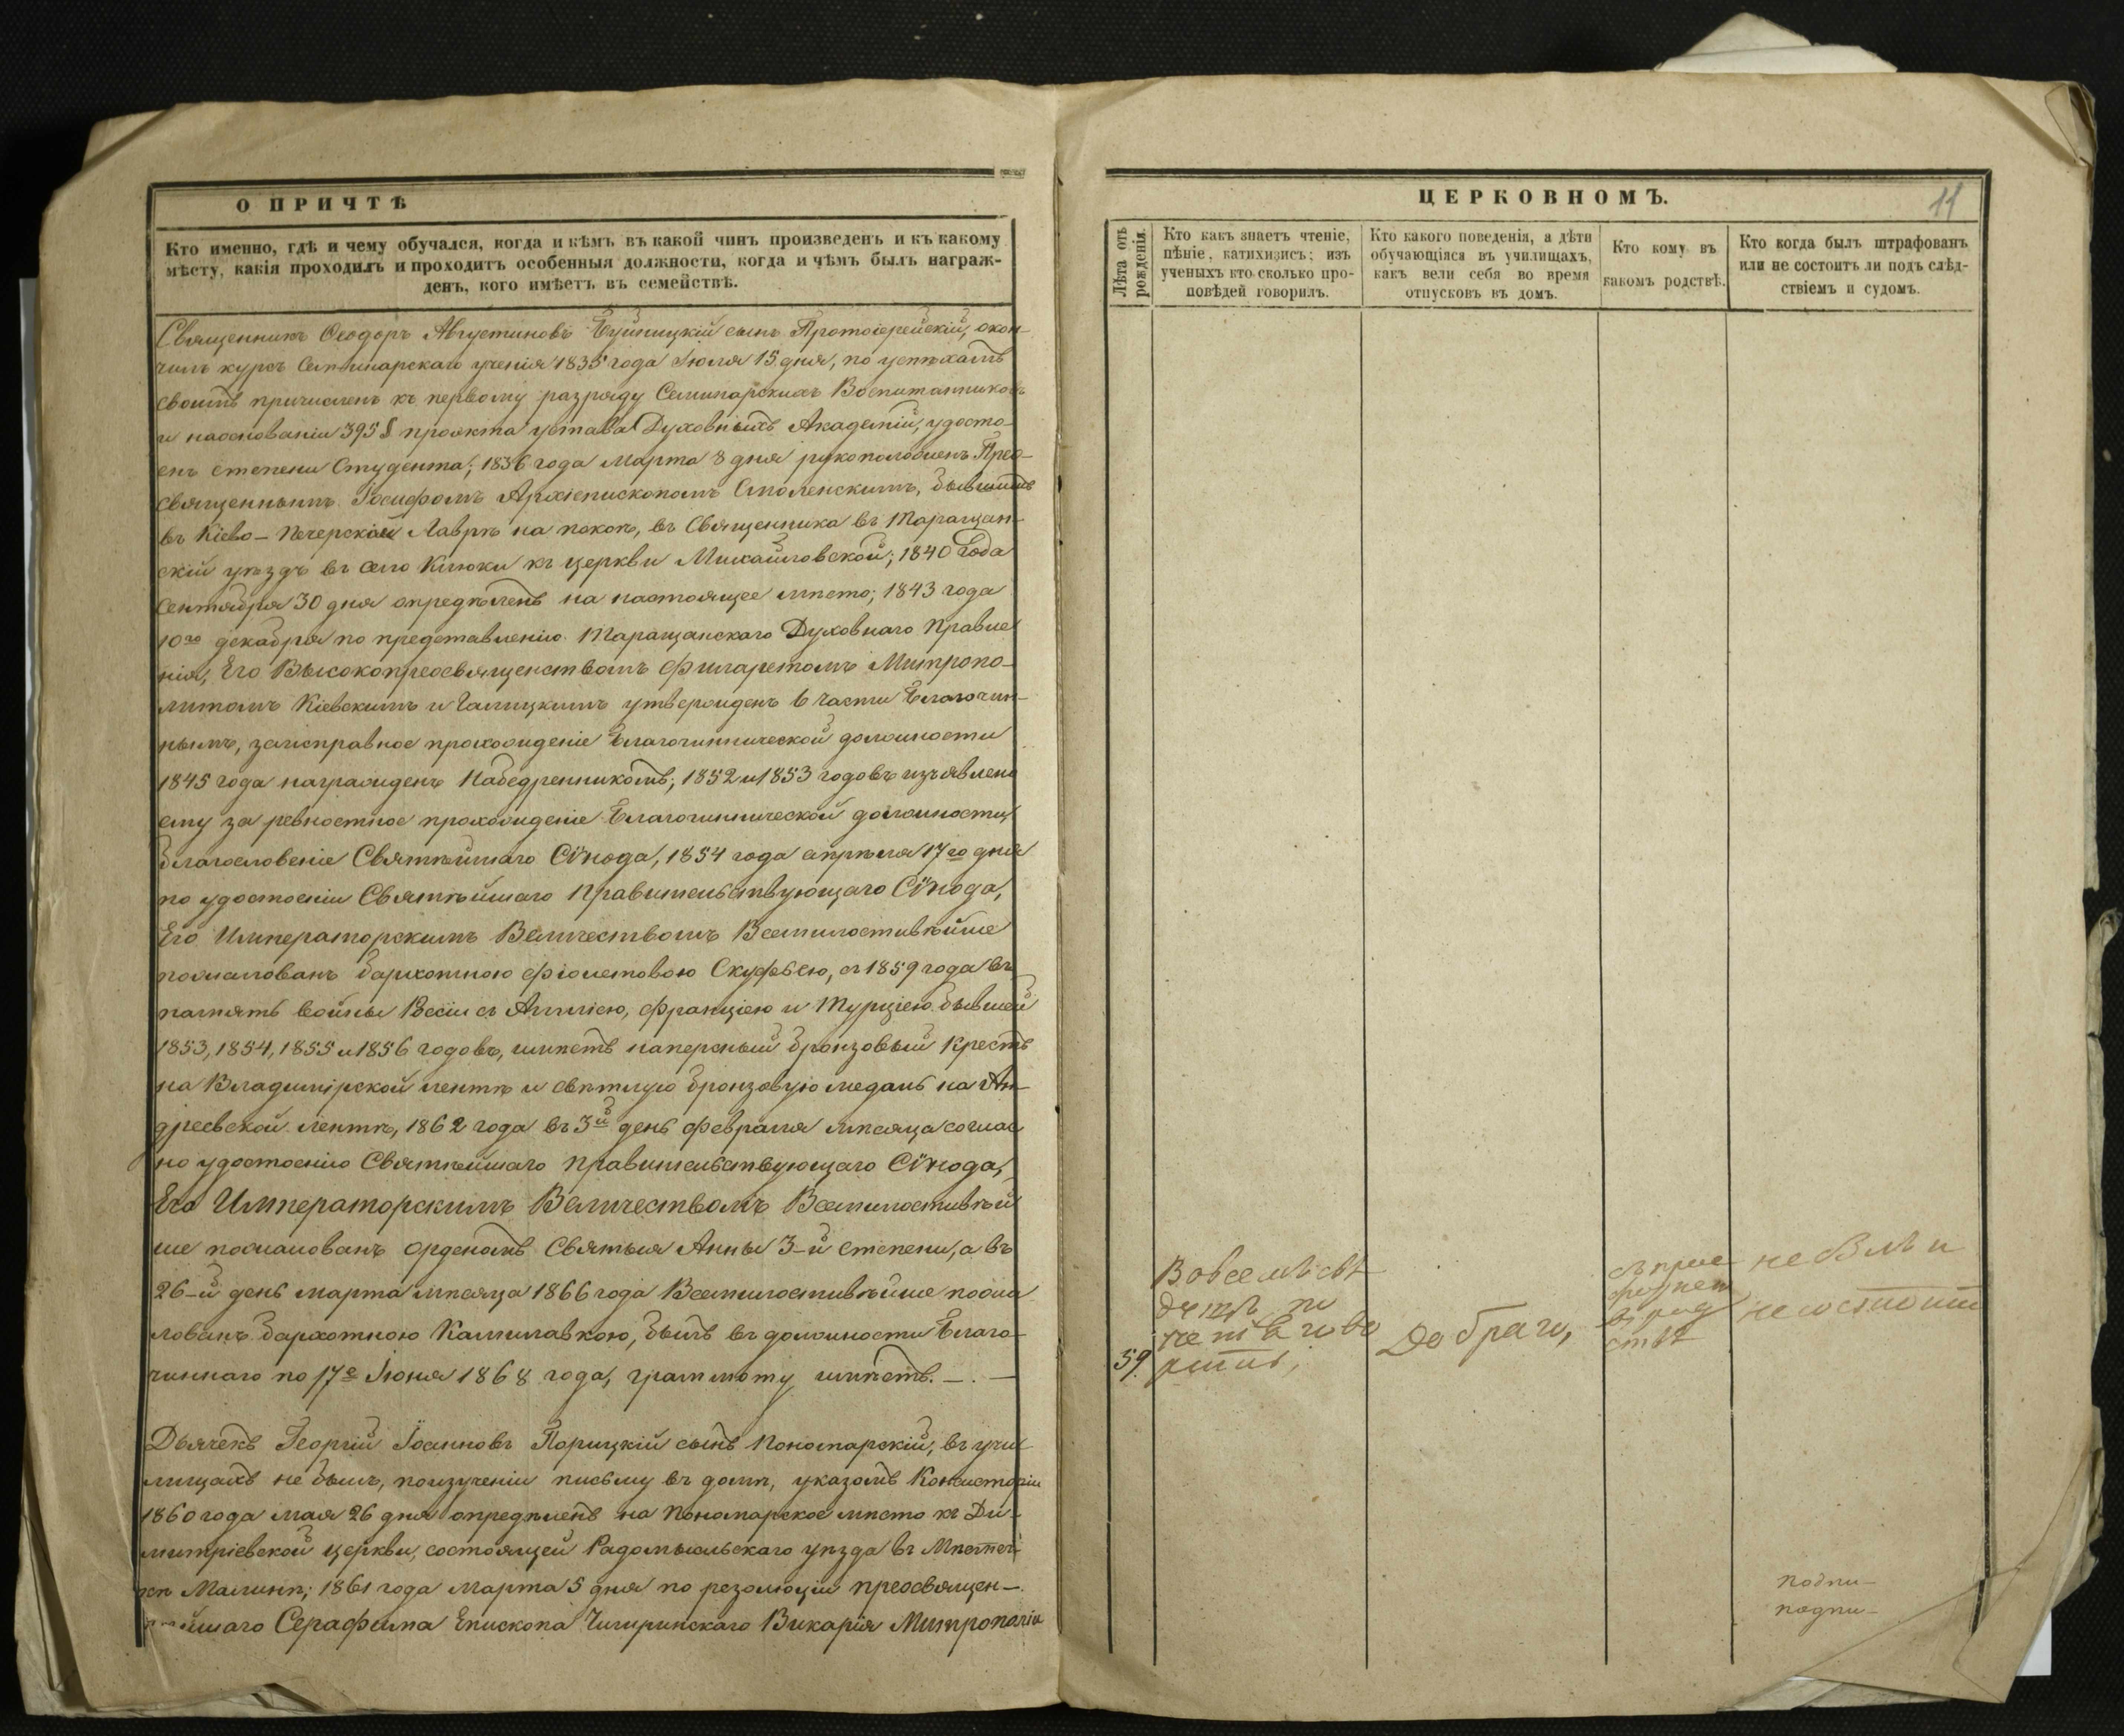 О ПРИЧТѢ
Кто именно, гдѣ и чему обучался, когда и кѣмъ въ какой чинъ произведенъ и къ какому
мѣсту, какія проходилъ и проходитъ особенныя должности, когда и чѣмъ былъ награж-
денъ, кого имѣетъ въ семействѣ.
Священникъ Ѳеодоръ Августиновъ Буйницкій сынъ Протоіерейскій, окон-
чилъ курсъ Семинарскаго ученія 1835 года Іюля 15 дня, по успѣхамъ
своимъ причисленъ къ первому разряду Семинарскихъ Воспитанниковъ
и наоснованіи 395 § проэкта устава Духовныхъ Академій, удосто-
енъ степени Студента; 1836 года Марта 8 дня рукоположенъ Прео-
священнымъ Іосифомъ Архіепископомъ Смоленскимъ, бывшимъ
въ Кіево-Печерской Лаврѣ на покоѣ, въ Священника въ Таращан-
скій уѣздъ въ село Клюки къ церкви Михайловской; 1840 года
Сентября 30 дня опредѣленъ на настоящее мѣсто; 1843 года
10го декабря по представленію Таращанскаго Духовнаго Правле
нія, Его Высокопреосвященствомъ Филаретомъ Митропо-
литомъ Кіевскимъ и Галицкимъ утвержденъ 6 части Благочин-
нымъ, заисправное прохожденіе Благочиннической должности
1845 года награжденъ Набедренникомъ; 1852 и 1853 годовъ изъявлено
ему за ревностное прохожденіе Благочиннической должности
благословеніе Святѣйшаго Сѵнода, 1854 года апрѣля 17го дня
по удостоенію Святѣйшаго Правительствующаго Сѵнода,
Его Императорскимъ Величествомъ Всемилостивѣйше
пожалованъ бархотною фіолетовою Скуфьею, съ 1859 года въ
память войны Россіи съ Англіею, Франціею и Турціею бывшей
1853, 1854, 1855 и 1856 годовъ, имѣетъ наперсный бронзовый Крестъ
на Владимірской лентѣ и свѣтлую бронзовую медаль на Ан-
дреевской лентѣ, 1862 года въ 3й день Февраля мѣсяца соглас
но удостоенію Святѣйшаго Правительствующаго Сѵнода,
Его Императорскимъ Величествомъ Всемилостивѣй
ше пожалованъ орденомъ Святыя Анны 3-й степени, а въ
26-й день марта мѣсяца 1866 года Всемилостивѣйше пожа
лованъ бархотною Камилавкою, былъ въ должности Благо-
чиннаго по 17е Іюня 1868 года, граммоту имѣетъ.
Дьячекъ Георгій Іоанновъ Порицкій сынъ Пономарскій, въ учи-
лищахъ не былъ, поизученіи письму въ домѣ, указомъ Консисторіи
1860 года мая 26 дня опредѣленъ на Пономарское мѣсто къ Ди-
митріевской церкви, состоящей Радомысльскаго уѣзда въ Мѣстеч-
кѣ Малинѣ; 1861 года Марта 5 дня по резолюціи преосвящен-
нѣйшаго Серафима Епископа Чигиринскаго Викарія Митрополіи
ЦЕРКОВНОМЪ.
11
Лѣта отъ рожденія.
Кто какъ знаетъ чтеніе,
пѣніе, катихизисъ; изъ
ученыхъ кто сколько про-
повѣдей говорилъ.
Кто какого поведенія, а дѣти
обучающіяся въ училищахъ,
какъ вели себя во время
отпусковъ въ домъ.
Кто кому въ
какомъ родствѣ.
Кто когда былъ штрафованъ
или не состоитъ ли подъ слѣд-
ствіемъ и судомъ.
59.
Добраго,
не былъ и
не состоитъ
подпи-
подпи-